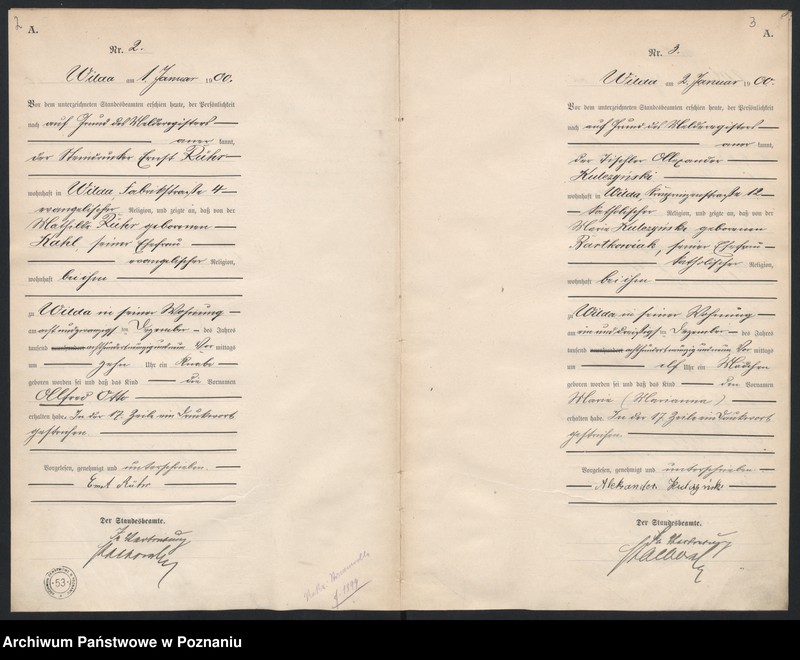 2
A.
Nr. 2.
Wilda am 1. Januar 1900.
Vor dem unterzeichneten Standesbeamten erschien heute, der Persönlichkeit
nach auf Grund des Melderegisters
aner kannt,
der Steindrucker Ernst Rühr
wohnhaft in Wilda Fabrikstraße 4
evangelischer Religion, und zeigte an, daß von der
Mathilde Rühr geborenen
Kahl, seiner Ehefrau
evangelischer Religion,
wohnhaft bei ihm
zu Wilda in seiner Wohnung
am acht und zwanzigsten Dezember des Jahres
tausend achthundertneunzigundneun Vor mittags
um zehn Uhr ein Knabe
geboren worden sei und daß das Kind die Vornamen
Alfred Otto
erhalten habe. In der 17. Zeile ein Druckwort
gestrichen.
Vorgelesen, genehmigt und unterschrieben.
Ernst Rühr
Der Standesbeamte.
In Vertretung
53
3
A.
Nr. 3.
Wilda am 2. Januar 1900.
Vor dem unterzeichneten Standesbeamten erschien heute, der Persönlichkeit
nach auf Grund des Melderegisters
aner kannt,
der Tischler Alexander
Kulczyński
wohnhaft in Wilda, 12
katholischer Religion, und zeigte an, daß von der
Maria Kulczyńska geborenen
Bartkowiak, seiner Ehefrau
katholischer Religion,
wohnhaft bei ihm
zu Wilda in seiner Wohnung
am ein und dreißigsten Dezember des Jahres
tausend achthundertneunzigundneun Vor mittags
um elf Uhr ein Mädchen
geboren worden sei und daß das Kind den Vornamen
Maria (Marianna)
erhalten habe. In der 17. Zeile ein Druckwort
gestrichen.
Vorgelesen, genehmigt und unterschrieben
Aleksander Kulczyński
Der Standesbeamte.
In Vertretung
Archiwum Państwowe w Poznaniu